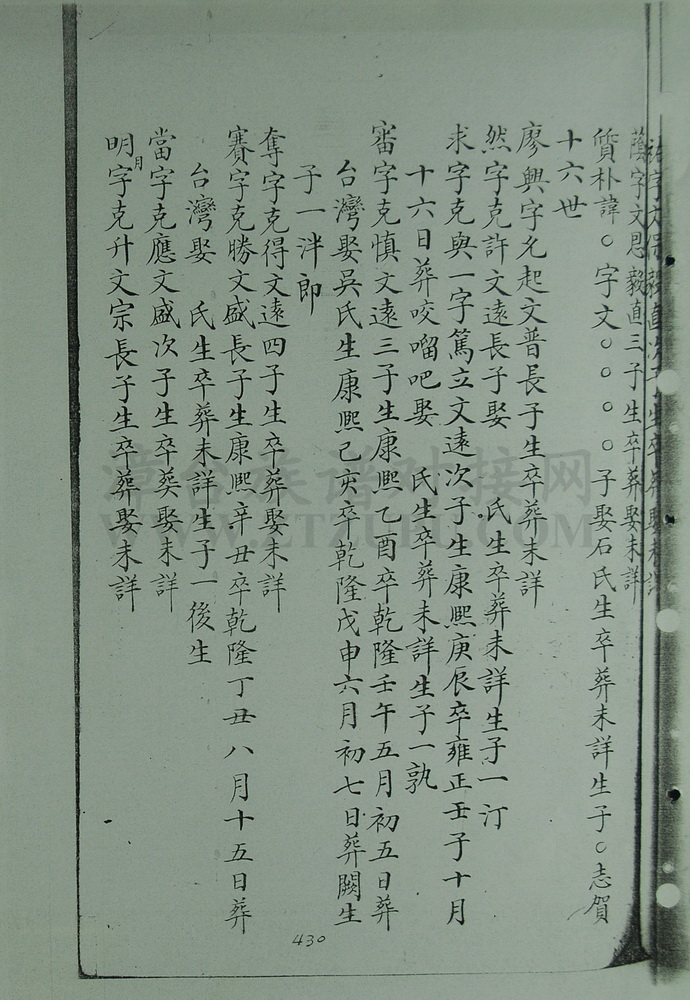 字文
蔭字文思毅直三子生卒葬娶未詳
質朴諱○字文○○○○子娶石氏生卒葬未詳生子○志賀
十六世
廖興字允起文普長子生卒葬未詳
然字克許文遠長子娶 氏生卒葬未詳生子一汀
求字克與一字篤立文遠次子生康熙庚辰卒雍正壬子十月
十六日葬咬㗂吧娶 氏生卒葬未詳生子一孰
審字克慎文遠三子生康熙乙酉卒乾隆壬午五月初五日葬
台灣娶吳氏生康熙己亥卒乾隆戊申六月初七日葬闕生
子一泮郎
奪字克得文遠四子生卒葬娶未詳
賽字克勝文盛長子生康熙辛丑卒乾隆丁丑八月十五日葬
台灣娶 氏生卒葬未詳生子一後生
當字克應文盛次子生卒葵娶未詳
明月字克升文宗長子生卒葬娶未詳
430
漳台族谱对接网
WWW.ZTZUPU.COM